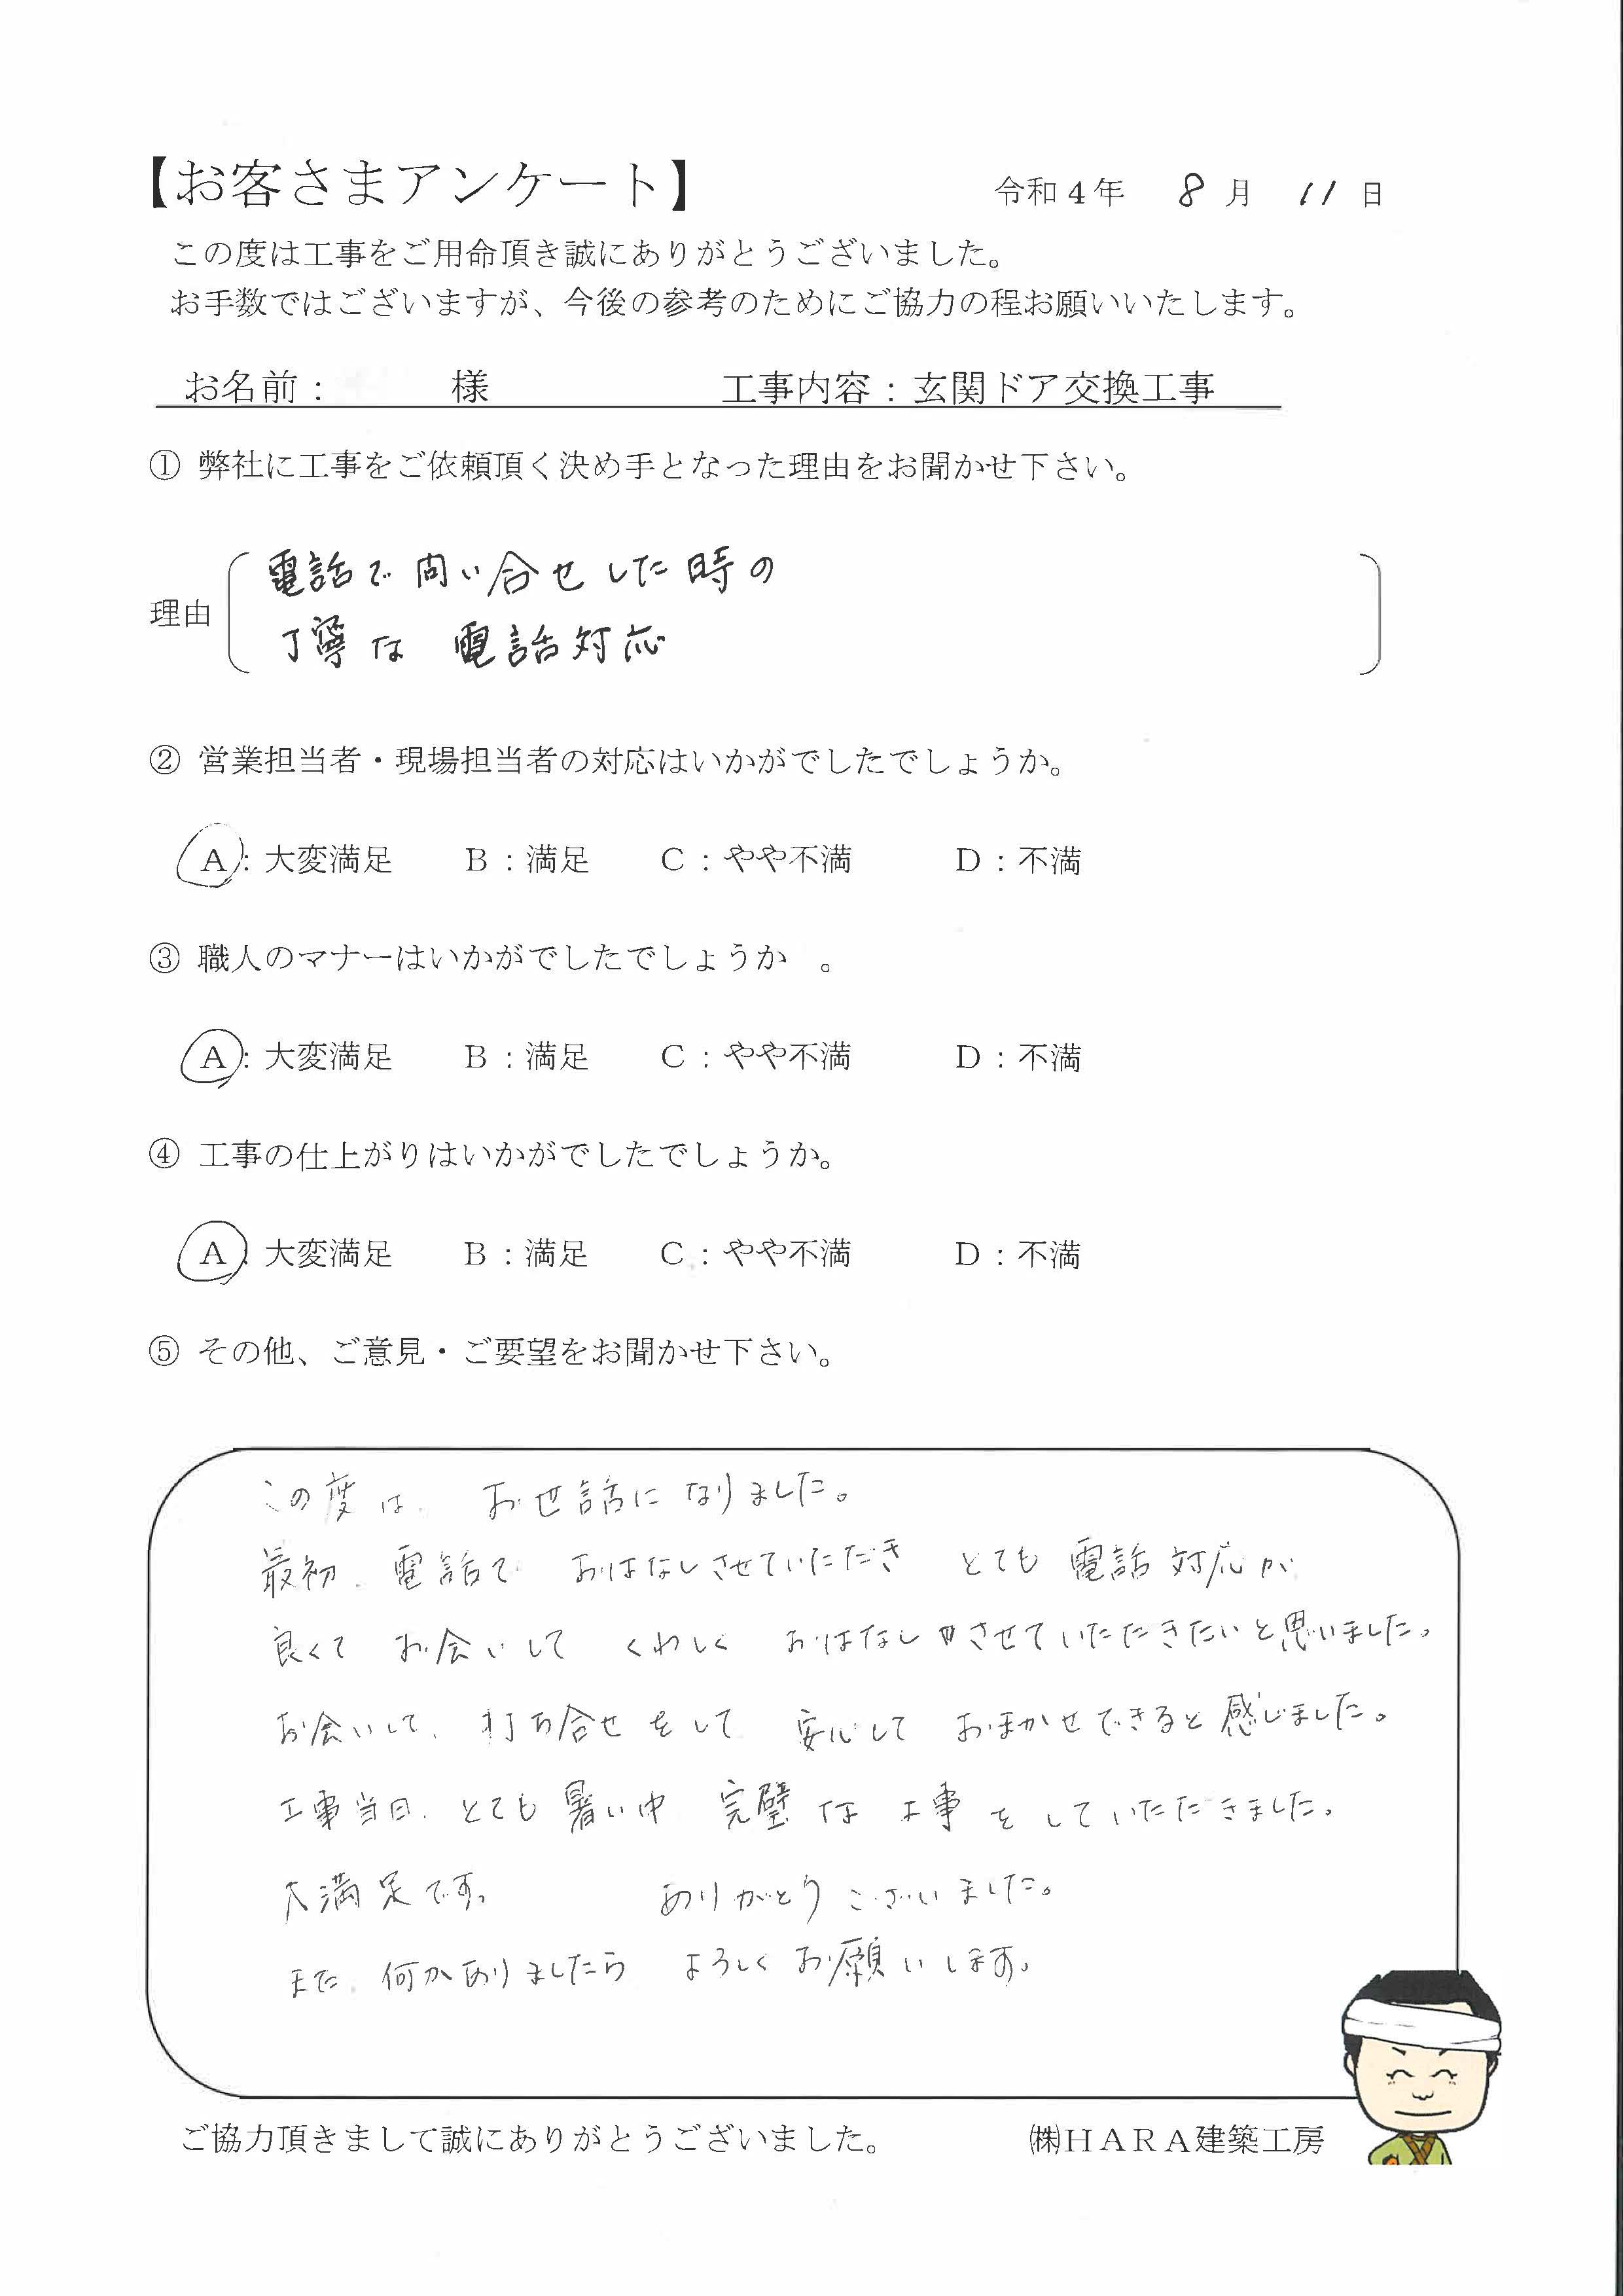 【お客さまアンケート】 令和４年 8月 11日
この度は工事をご用命頂き誠にありがとうございました。
お手数ではございますが、今後の参考のためにご協力の程お願いいたします。
お名前： 様 工事内容：玄関ドア交換工事
① 弊社に工事をご依頼頂く決め手となった理由をお聞かせ下さい。
理由 電話で問い合せした時の
丁寧な 電話対応
② 営業担当者・現場担当者の対応はいかがでしたでしょうか。
Ａ：大変満足 Ｂ：満足 Ｃ：やや不満 Ｄ：不満
③ 職人のマナーはいかがでしたでしょうか 。
Ａ：大変満足 Ｂ：満足 Ｃ：やや不満 Ｄ：不満
④ 工事の仕上がりはいかがでしたでしょうか。
Ａ：大変満足 Ｂ：満足 Ｃ：やや不満 Ｄ：不満
⑤ その他、ご意見・ご要望をお聞かせ下さい。
この度は、お世話になりました。
最初、電話で おはなしさせていただき とても 電話対応が
良くて お会いして くわしく おはなしさせていただきたいと思いました。
お会いして、打ち合せをして 安心して おまかせできると感じました。
工事当日、とても暑い中 完璧な 工事を していただきました。
大満足です。 ありがとうございました。
また、何かありましたら よろしくお願いします。
ご協力頂きまして誠にありがとうございました。 ㈱ＨＡＲＡ建築工房